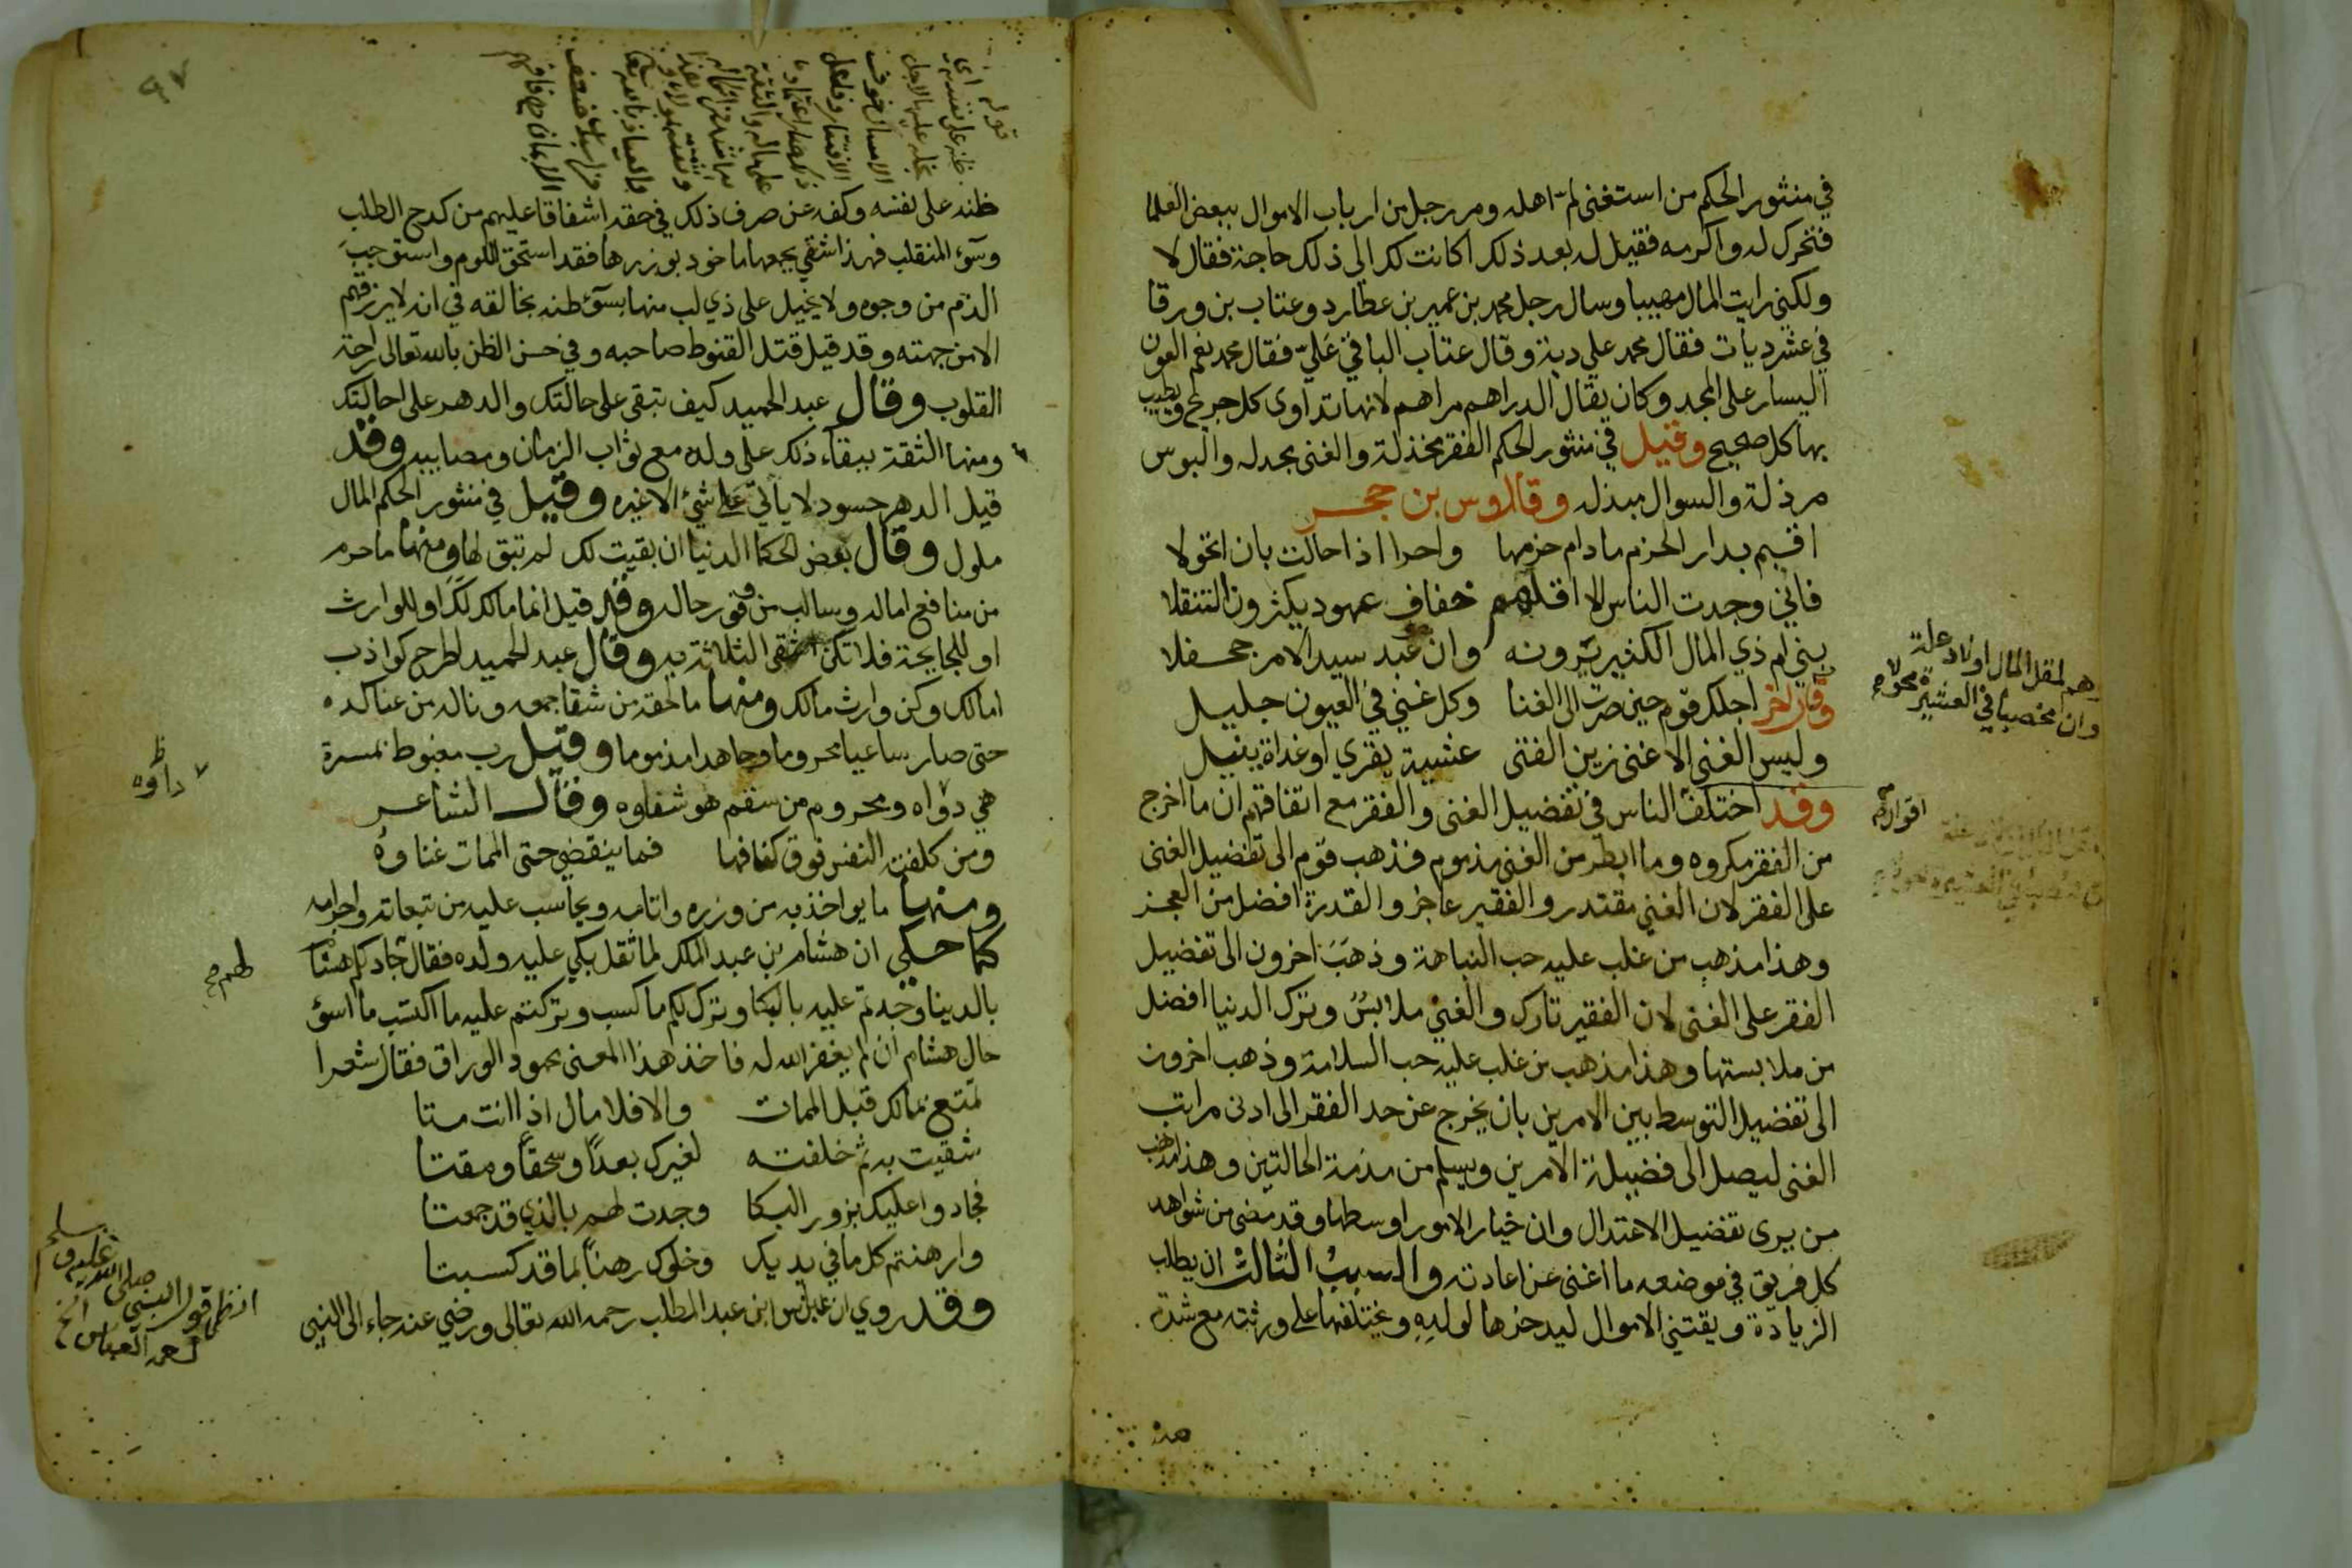 في منثور الحكم من استغنى كرم على اهله ومر رجل من ارباب الاموال ببعض العلما
فتحرك له واكرمه فقيل له بعد ذلك اكانت لك الى ذلك حاجة فقال لا
ولكني رايت المال مهيبا وسال رجل محمد بن عمير بن عطارد وعتاب بن ورقا
في عشر ديات فقال محمد علي دية وقال عتاب الباقي عَليّ فقال محمد نعم العون
اليسار على المجد وكان يقال الدراهم مراهم لانها تداوى كل جريح ويطيب
بها كل صحيح وقيل في منثور الحكم الفقر مخذلة والغنى مجدله والبوس
مرذلة والسوال مبذله وقال اوس بن حجر
اقيم بدار الحزم ما دام حزمها واحرا اذا حالت بان اتحولا
فاني وجدت الناس الا اقلهم خفاف عهود يكثرون التنقلا
بني ام ذي المال الكثير يرونه وان عبد سيد الامر جحفلا
وهم لمقل المال اولاد علة
وان كان محضا في العشيرة مخولا
وقال اخر اجلك قوم حين صرت الى الغنا وكل غني في العيون جليل
وليس الغنى الا غنى زين الفتى عشية يقري او غداة ينيل
وقد اختلف الناس في تفضيل الغنى والفقر مع اتفاقهم ان ما اخرج
من الفقر مكروه وما ابطر من الغنى مذموم فذهب قوم الى تفضيل الغنى
على الفقر لان الغني مقتدر والفقير عاجز والقدرة افضل من العجز
وهذا مذهب من غلب عليه حب النباهة وذهَبَ اخرون الى تفضيل
الفقر على الغنى لان الفقير تارك والغني ملابسٌ وترك الدنيا افضل
من ملابستها وهذا مذهب من غلب عليه حب السلامة وذهب اخرون
الى تفضيل التوسط بين الامرين بان يخرج عن حد الفقر الى ادنى مراتب
الغنى ليصل الى فضيلة الامرين ويسلم من مذمة الحالتين وهذا مذهب
من يرى تفضيل الاعتدال وان خيار الامور اوسطها وقد مضى من شواهد
كل فريق في موضعه ما اغنى عن اعادته والسببُ الثالث ان يطلب
الزيادة ويقتني الاموال ليدخرها لولدِهِ ويخلفها على ورثته مع شدة
ظنه على نفسه وكفه عن صرف ذلك في حقه اشفاقا عليهم من كدح الطلب
وسَوء المنقلب فهذا شقي بجمعها ماخوذ بوزرها فقد استحق اللوم واستوجبَ
الذم من وجوه ولا يخيل على ذي لب منها بسوء ظنه بخالقه في انه لا يرزقهم
الا من جهته وقد قيل قتل القنوط صاحبه وفي حسن الظن بالله تعالى راحة
القلوب وقال عبد الحميد كيف تبقى على حالتك والدهر على احالتك
ومنها الثقة ببقاء ذلك على ولده مع نواب الزمان ومصايبه وقد
قيل الدهر حسود لا ياتي على شيء الا غيره وقيل في منثور الحكم المال
ملول وقال بعض الحكما الدنيا ان بقيت لك لم تبق لها ومنها ما حرم
من منافع ماله وسلب من وفور حاله وقد قيل انما مالك لكَ او للوارث
او للجايحة فلا تكن اشقى الثلاثة به وقال عبد الحميد اطرح كواذب
امالك وكن وارث مالك ومنها ما لحقه من شقا جمعه وناله من عنا كده
حتى صار ساعيا محروما وجاهدا مذموما وقيل رب مغبوط بمسرة
هي دواه ومحروم من سقم هو شفاوه وقال الشاعر
داؤه
ومن كلفته النفس فوق كفافها فما ينقضي حتى الممات عناوهُ
ومنها ما يواخذ به من وزره واثامه ويحاسب عليه من تبعاته واجرامه
كما حكي ان هشام بن عبد الملك لما ثقل بكي عليه ولده فقال جاد لكم هشام
بالدينا وجدتم عليه بالبكا وترك لكم ما كسب وتركتم عليه ما اكتسب ما اسوء
حال هشام ان لم يغفر الله له فاخذ هذا المعنى محمود الوراق فقال شعرا
تمتع بمالك قبل الممات والا فلا مال اذا انت متا
شقيت به ثم خلفته لغيرك بعداً وسحقاً ومقتا
فجادوا عليك بزور البكا وجدت لهم بالذي قد جمعتا
وارهنتم كل ما في يديك وخلوك رهناً بما قد كسبتا
وقد روي ان عباس ابن عبد المطلب رحمه الله تعالى ورضي عنه جاء الى النبي
انظر قول النبي صلى الله عليه وسلم
لعمه العباس الخ